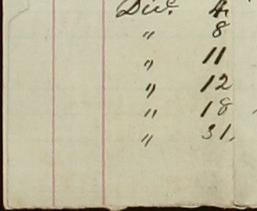 Dec. 4.
" 8
" 11
" 12
" 18
" 31.